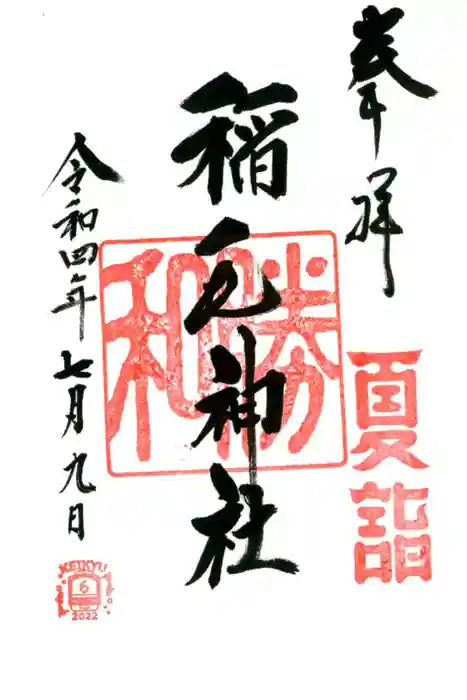 奉拝
夏詣
稲毛神社
勝和
令和四年七月九日
KEIKYU
6
2022